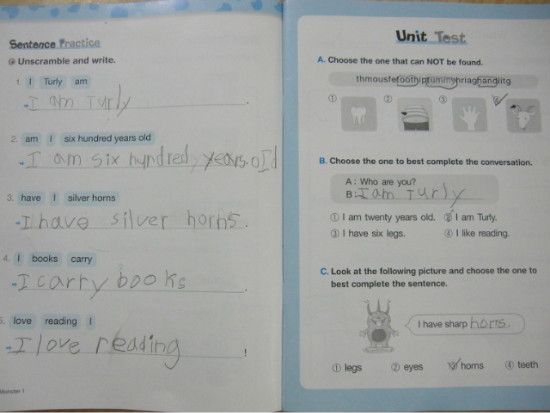 Sentence Practice
Unscramble and write.
1. I Turly am
I am Turly.
2. am I six hundred years old
I am six hundred years old
3. have I silver horns
I have silver horns.
4. I books carry
I carry books.
5. love reading I
I love reading!
Monster 1
Unit Test
A. Choose the one that can NOT be found.
thmousfetoothiptummyhriaghandiitg
① ② ③ ④
B. Choose the one to best complete the conversation.
A : Who are you?
B : I am Turly
① I am twenty years old. ② I am Turly.
③ I have six legs. ④ I like reading.
C. Look at the following picture and choose the one to
best complete the sentence.
I have sharp horns.
① legs ② eyes ③ horns ④ teeth